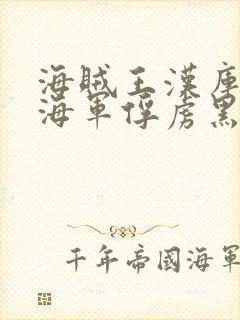 海賊王漢庫
海軍俘虜黑
千年帝國海軍